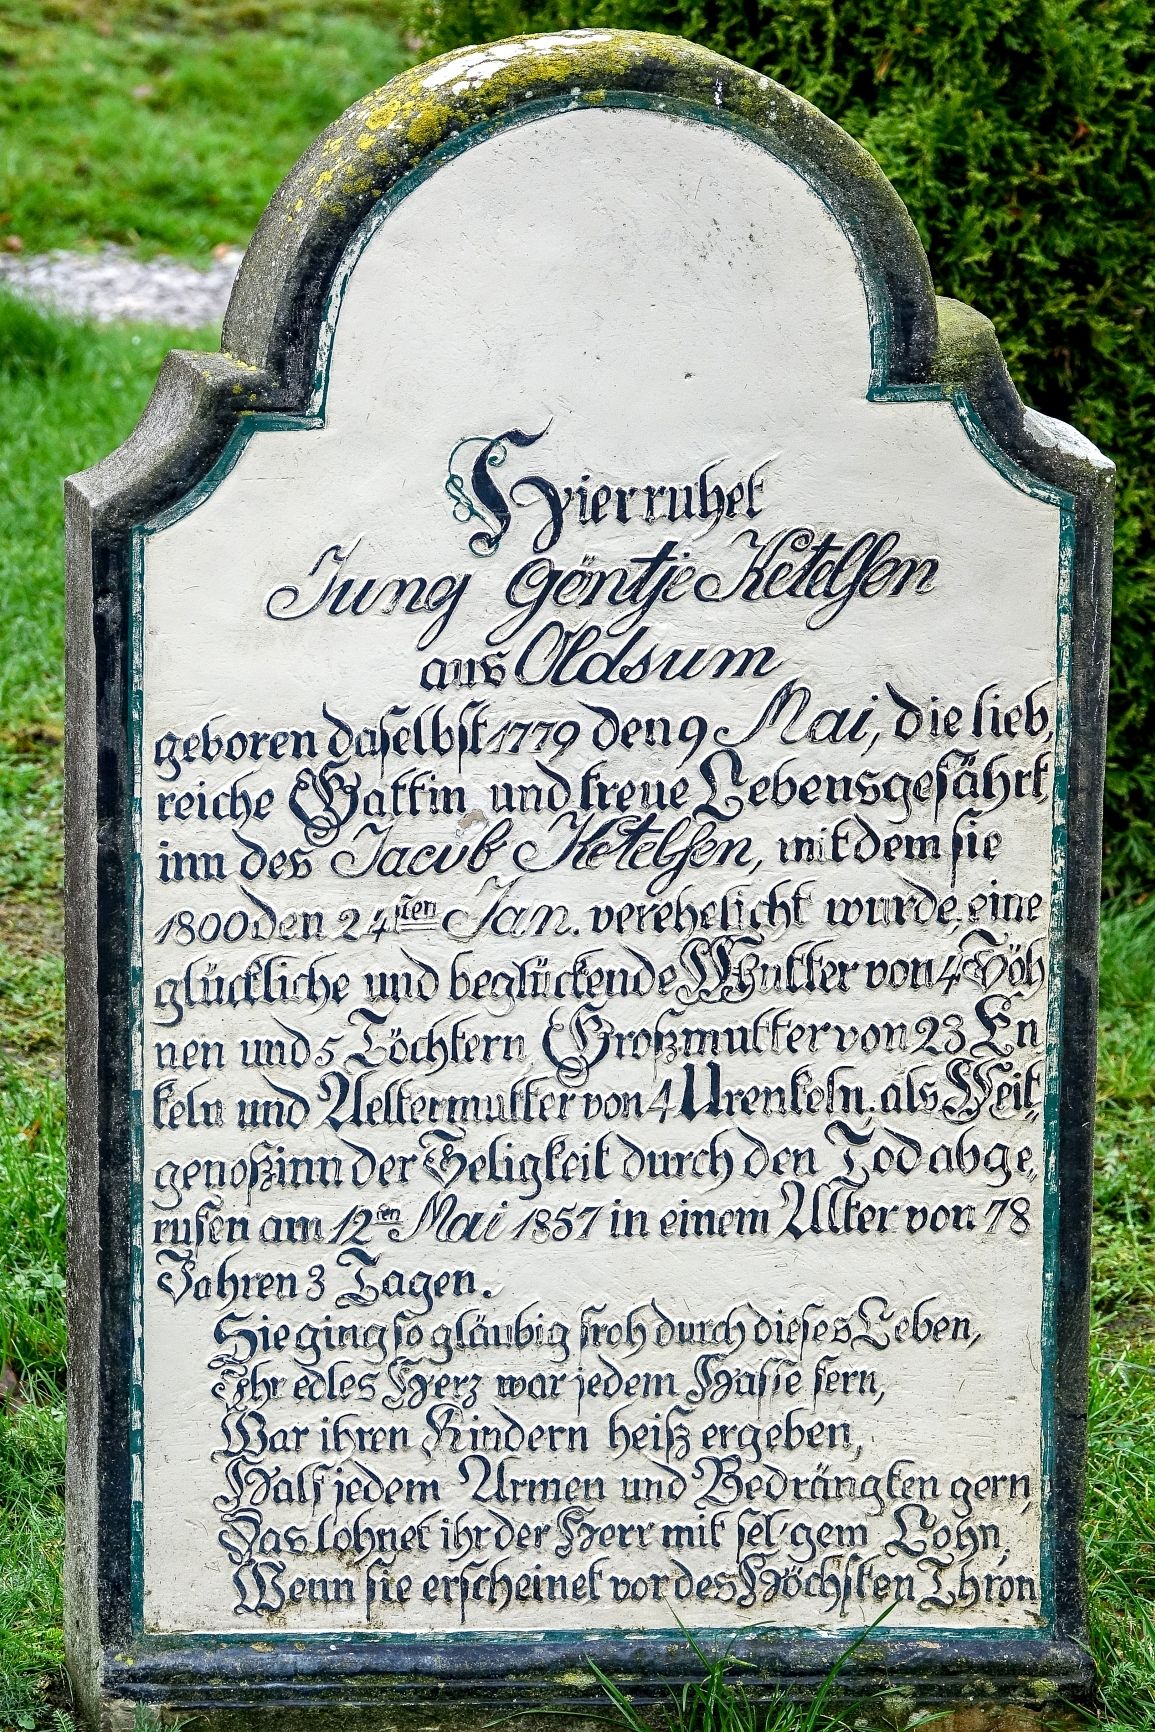 Hier ruhet
Jung Göntje Ketelsen
aus Oldsum
geboren daselbst 1779 den 9 Mai, die lieb,
reiche Gattin und treue Lebensgefährt,
inn des Jacob Ketelsen, mit dem sie
1800 den 24sten Jan. verehelicht wurde, eine
glückliche und beglückende Mutter von 4 Söh
nen und 5 Töchtern Großmutter von 23 En
keln und Aeltermutter von 4 Urenkeln. als Zeit,
genoßinn der Seligkeit durch den Tod abge,
rufen am 12ten Mai 1857 in einem Alter von 78
Jahren 3 Tagen.
Sie ging so gläubig froh durch dieses Leben,
Ihr edles Herz war jedem Hasse fern,
War ihren Kindern heiß ergeben,
Half jedem Armen und Bedrängten gern,
Das lohnet ihr der Herr mit sel'gem Lohn,
Wenn sie erscheinet vor des Höchsten Thron